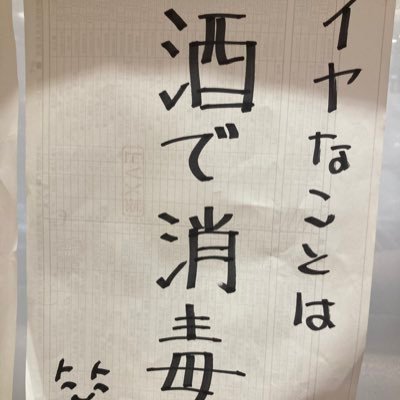 イヤなことは
酒で消毒